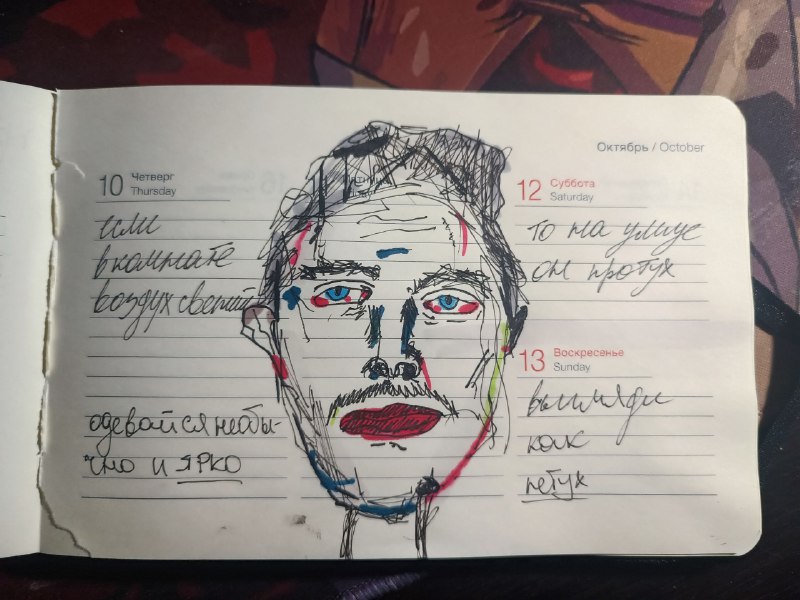 Октябрь / October
10 Четверг
Thursday
если
в комнате
воздух свежий
одевайся необы-
чно и ярко
12 Суббота
Saturday
то на улице
он протух
13 Воскресенье
Sunday
выгляди
как
петух